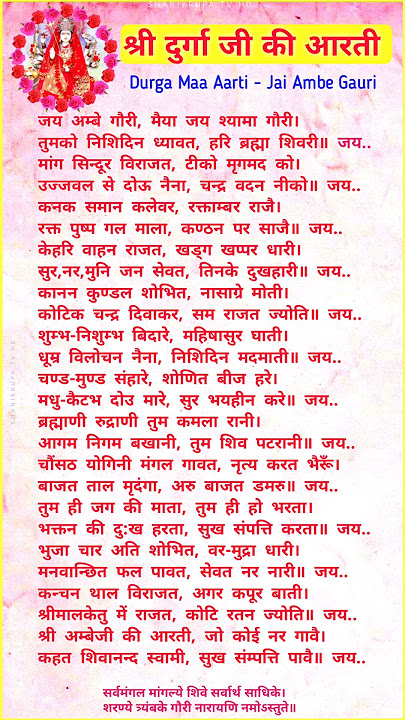 SHANIKRUPA TV HD
श्री दुर्गा जी की आरती
Durga Maa Aarti - Jai Ambe Gauri
जय अम्बे गौरी, मैया जय श्यामा गौरी।
तुमको निशिदिन ध्यावत, हरि ब्रह्मा शिवरी॥ जय..
मांग सिन्दूर विराजत, टीको मृगमद को।
उज्जवल से दोऊ नैना, चन्द्र वदन नीको॥ जय..
कनक समान कलेवर, रक्ताम्बर राजै।
रक्त पुष्प गल माला, कण्ठन पर साजै॥ जय..
केहरि वाहन राजत, खड्ग खप्पर धारी।
सुर,नर,मुनि जन सेवत, तिनके दुखहारी॥ जय..
कानन कुण्डल शोभित, नासाग्रे मोती।
कोटिक चन्द्र दिवाकर, सम राजत ज्योति॥ जय..
शुम्भ-निशुम्भ बिदारे, महिषासुर घाती।
धूम्र विलोचन नैना, निशिदिन मदमाती॥ जय..
चण्ड-मुण्ड संहारे, शोणित बीज हरे।
मधु-कैटभ दोउ मारे, सुर भयहीन करे॥ जय..
ब्रह्माणी रुद्राणी तुम कमला रानी।
आगम निगम बखानी, तुम शिव पटरानी॥ जय..
चौंसठ योगिनी मंगल गावत, नृत्य करत भैरूँ।
बाजत ताल मृदंगा, अरु बाजत डमरु॥ जय..
तुम ही जग की माता, तुम ही हो भरता।
भक्तन की दुःख हरता, सुख संपत्ति करता॥ जय..
भुजा चार अति शोभित, वर-मुद्रा धारी।
मनवान्छित फल पावत, सेवत नर नारी॥ जय..
कन्चन थाल विराजत, अगर कपूर बाती।
श्रीमालकेतु में राजत, कोटि रतन ज्योति॥ जय..
श्री अम्बेजी की आरती, जो कोई नर गावै।
कहत शिवानन्द स्वामी, सुख संम्पत्ति पावै॥ जय..
सर्वमंगल मांगल्ये शिवे सर्वार्थ साधिके।
शरण्ये त्र्यंबके गौरी नारायणि नमोऽस्तुते॥
SHANIKRUPA TV HD